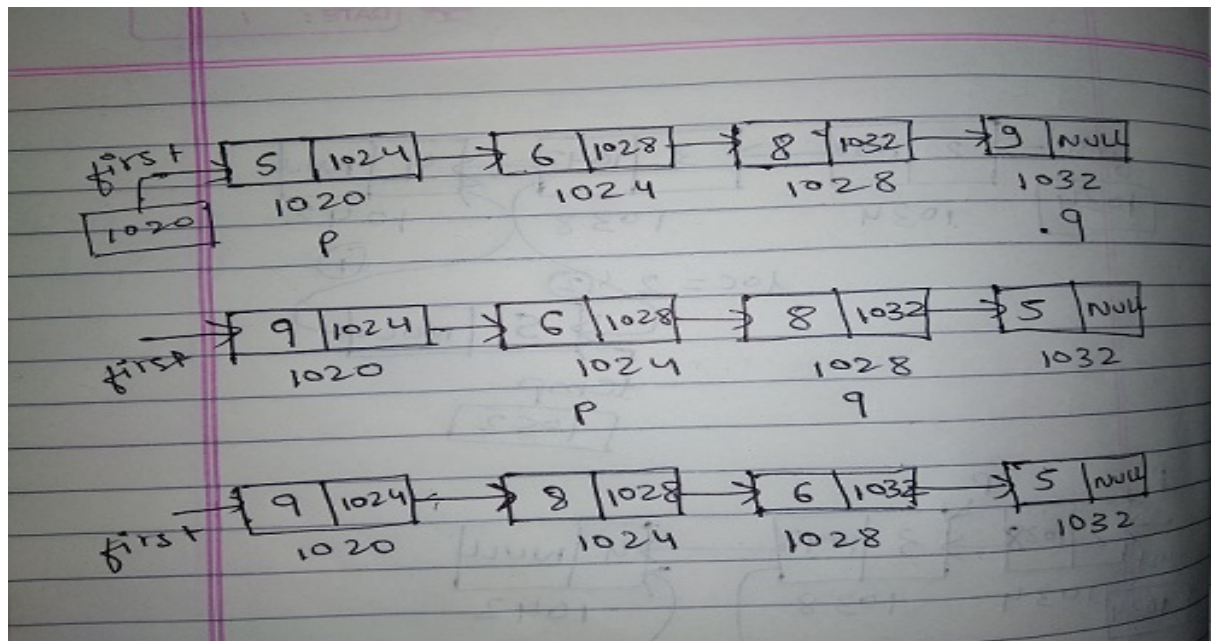 first 5 1024 6 1028 8 1032 9 NULL
1020 1020 1024 1028 1032
P q
first 9 1024 6 1028 8 1032 5 NULL
1020 1024 1028 1032
P q
first 9 1024 8 1028 6 1032 5 NULL
1020 1024 1028 1032